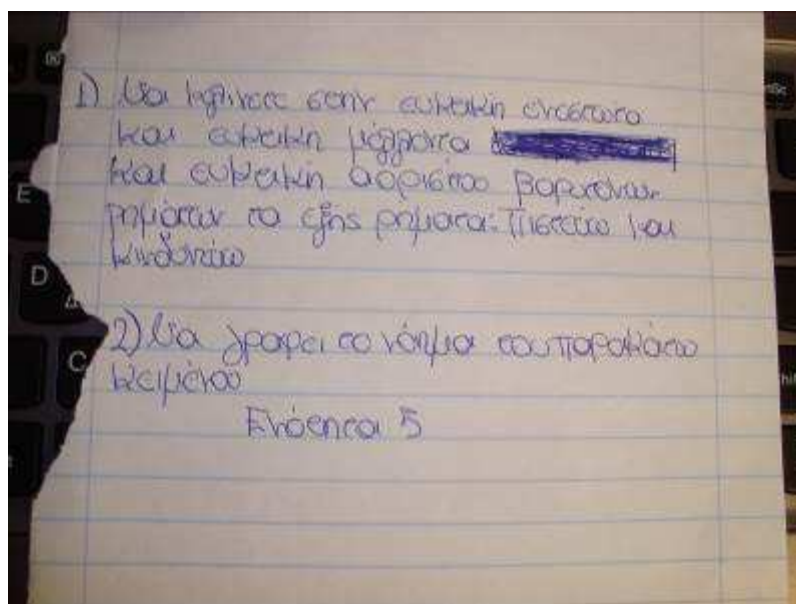 1) Να κλίνετε στην ευκτική ενεστώτα
και ευκτική μέλλοντα
και ευκτική αορίστου βαρυτόνων
ρημάτων το εξής ρήματα: Πιστεύω και
κινδυνεύω
2) Να γραφεί το νόημα του παρακάτω
κειμένου
Ενότητα 5